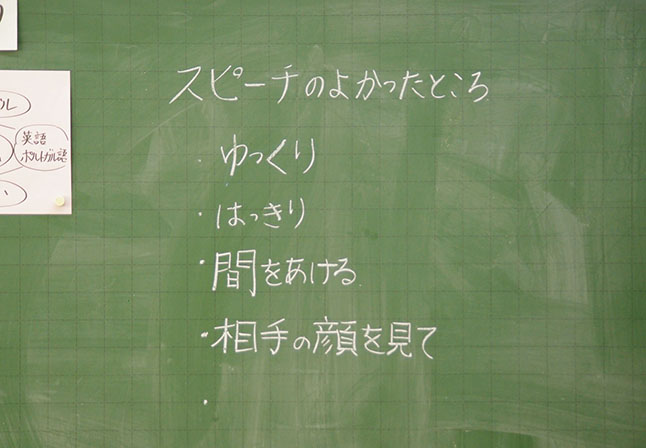 スピーチのよかったところ
・ゆっくり
・はっきり
・間をあける
・相手の顔を見て
・
英語
ポルトガル語